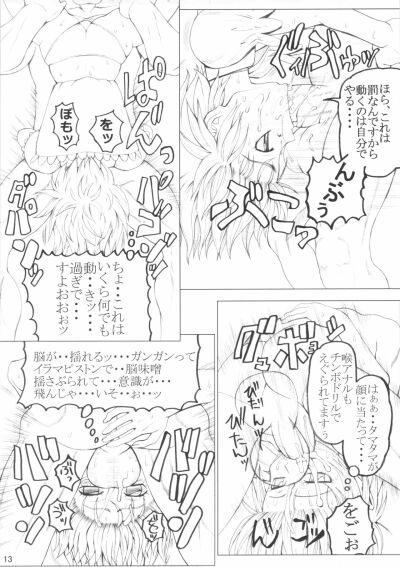 ぎゅぶッ
ほら、これは
罰なんですから
動くのは自分で
やる・・・・
んぶぅ
ぱんっ
ぼもッ
をッ
ダパンッ
ちょ・・これは
いくら何でも
動・・きッ・・
過ぎで・・
すよおおぉッ
グュボッ
はぁぁ・・タマタマが
顔に当たって・・・
喉アナルも
チンポドリルで
えぐられてますぅ
びたんッ
びたんッ
をごお
脳が・・揺れるッ・・・ガンガンって
イラマピストンで・・脳味噌
揺さぶられて・・・意識が・・
飛んじゃ・・いそ・・ぉ・・ッ
ぶっ
ぶっ
13